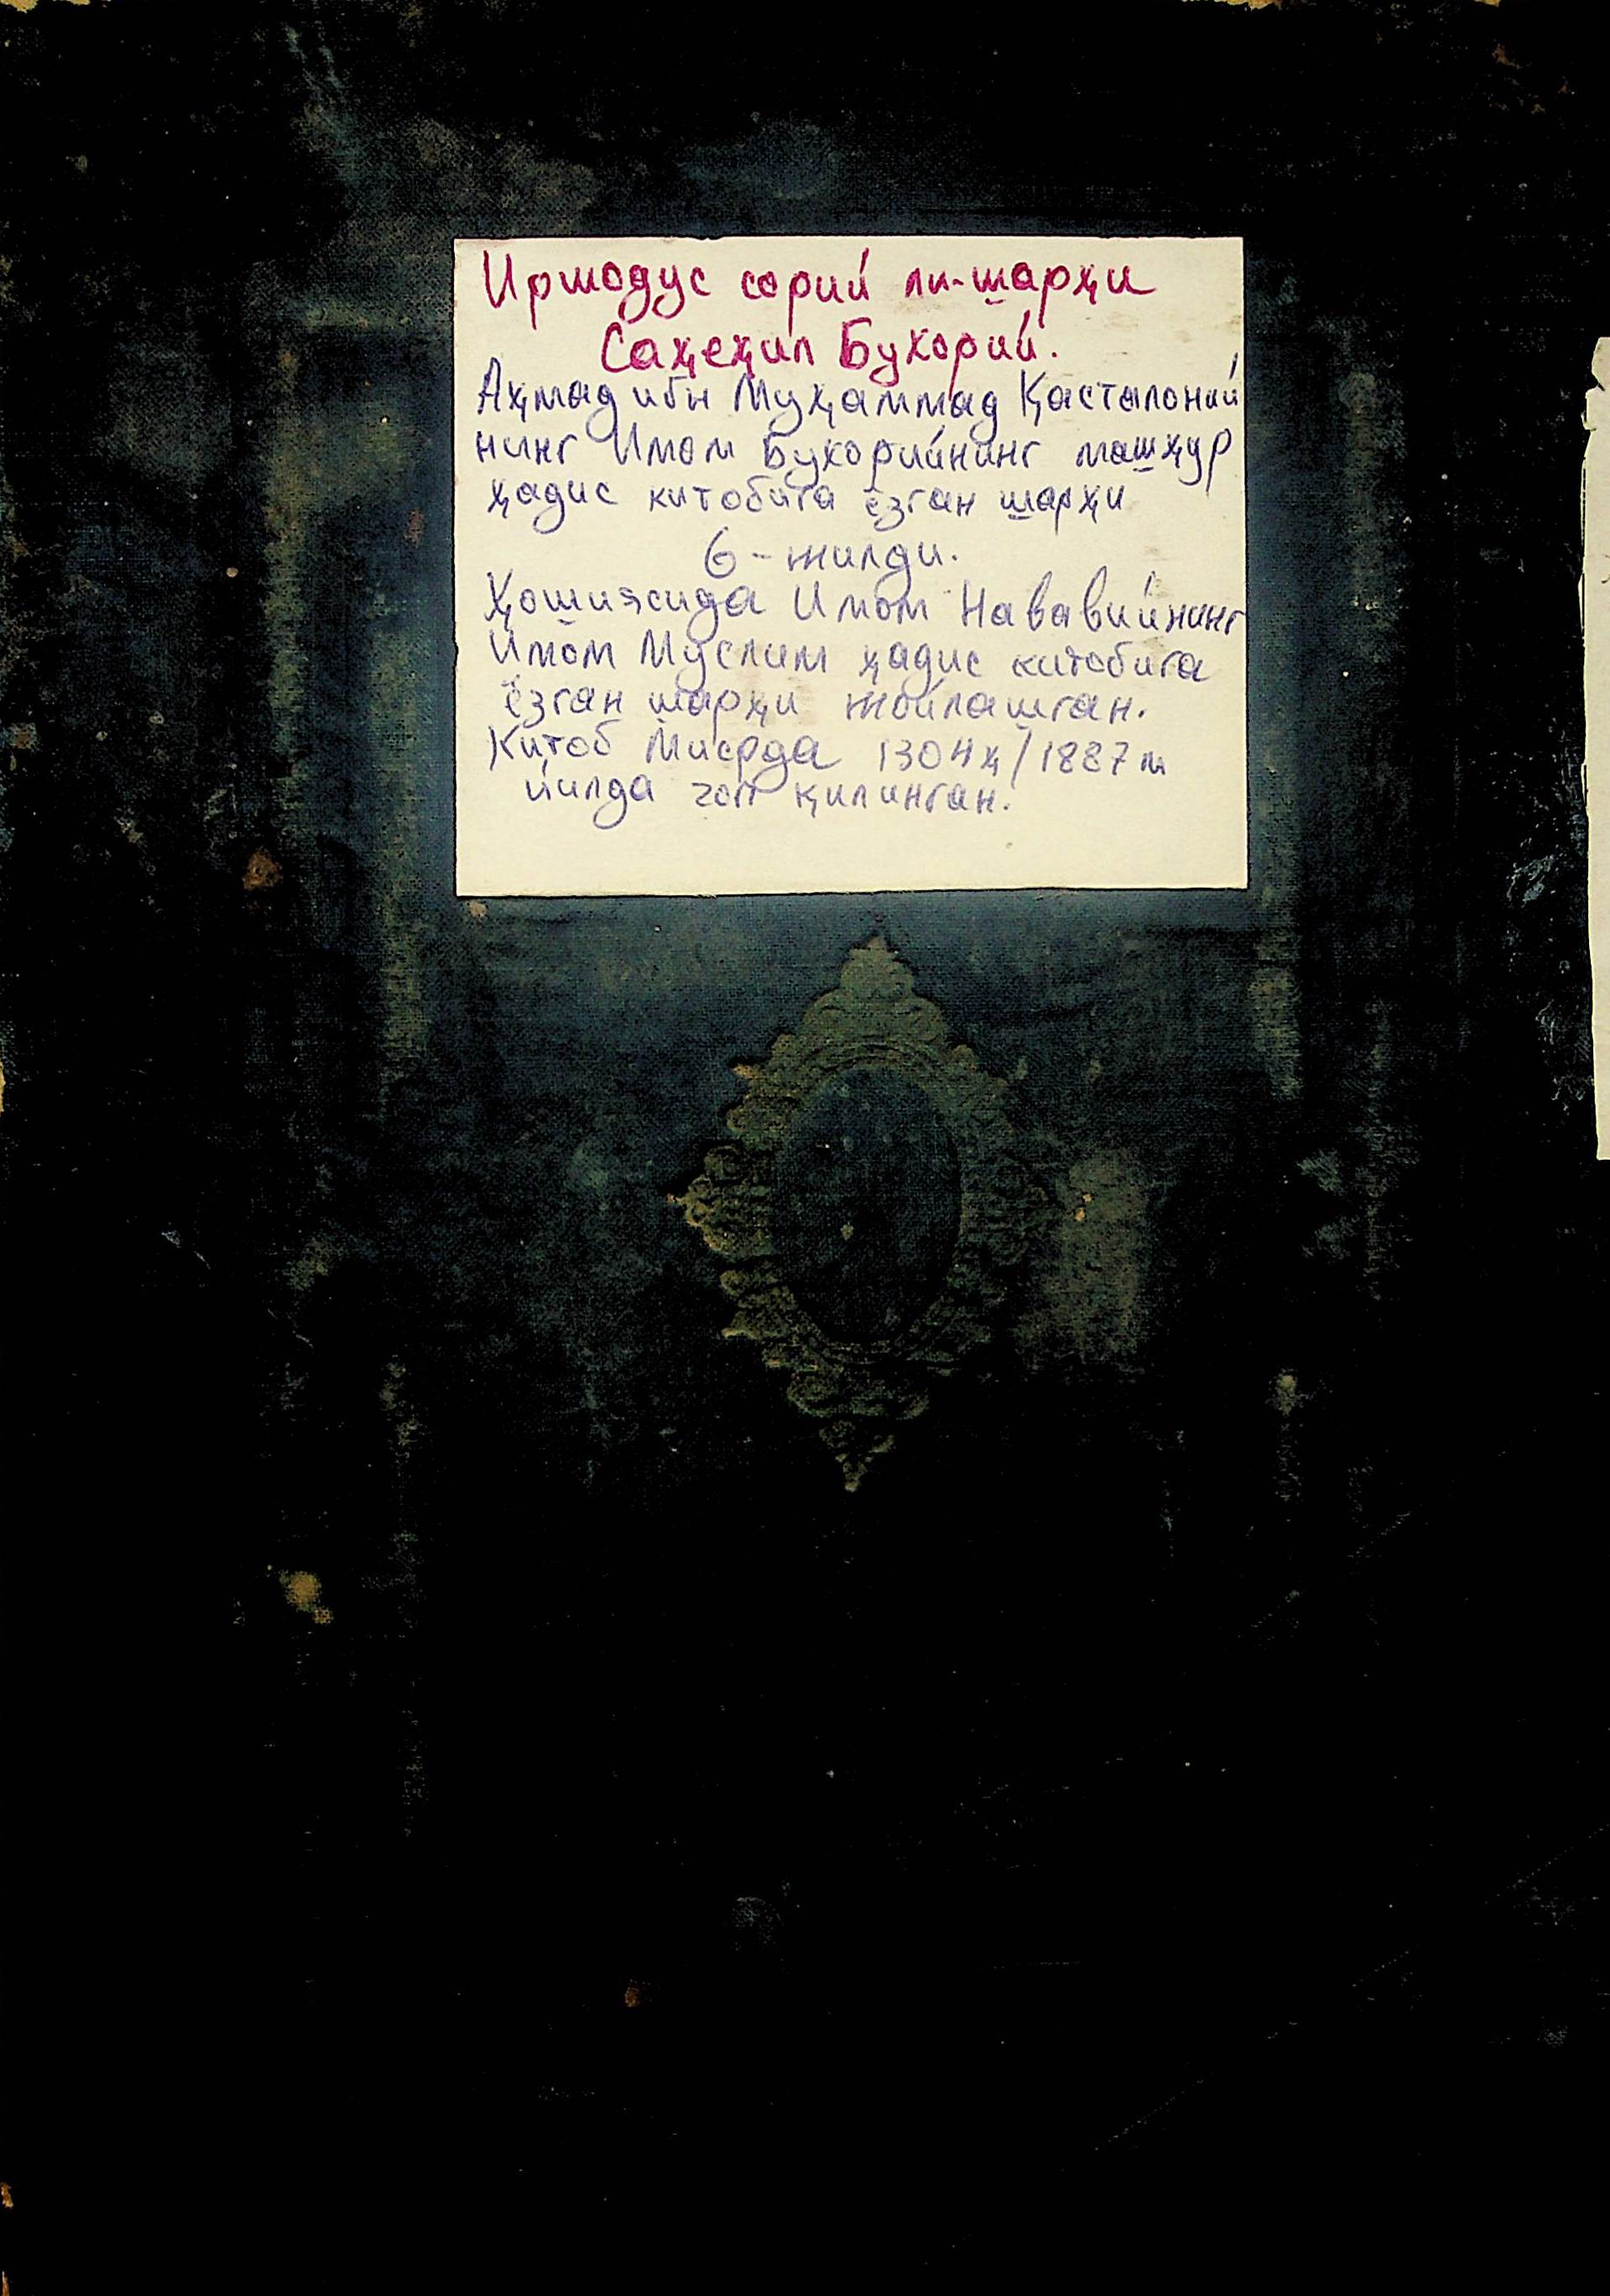 Иршодус сорий ли-шарҳи
Саҳеҳил Бухорий.
Аҳмад ибн Муҳаммад Қасталоний
нинг Имом Бухорийнинг машҳур
ҳадис китобига ёзган шарҳи
6-жилди.
Ҳошиясида Имом Нававийнинг
Имом Муслим ҳадис китобига
ёзган шарҳи жойлашган.
Китоб Мисрда 1304ҳ/1887м
йилда чоп қилинган.